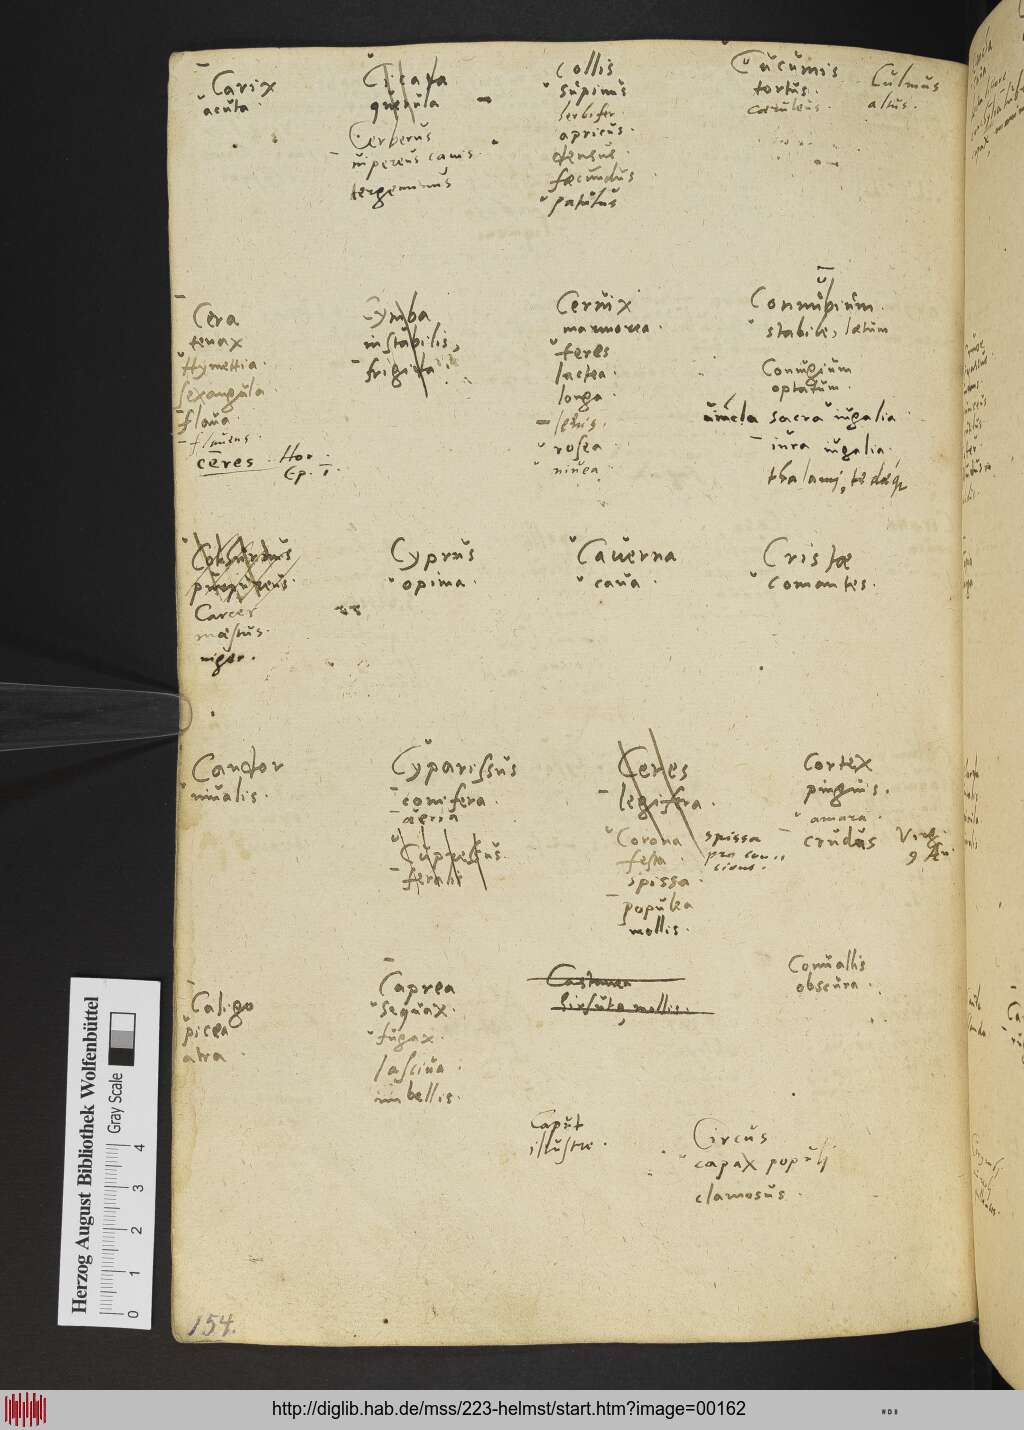 Carix
acuta.
Cicada
querula
Cerberus
vipereus canis.
tergeminus
Collis
supinus
herbifer.
apricus.
densus.
fœcundus
patulus
Cucumis
tortus.
cæruleus.
Culmus
altus.
Cera
tenax
Hymettia.
sexangula
flava.
ceres. Hor.
Ep. I.
Cymba
instabilis,
frigida.
Cervix
marmorea.
teres
lactea.
longa.
lenis.
rosea.
nivea.
Connubium.
stabile, lætum
Coniugium
optatum.
vincla sacra iugalia.
iura iugalia.
thalami, tædæq
Cothurnus
purpureus.
Carcer
mæstus.
niger.
Cyprus
opima.
Caverna
cava.
Cristæ
comantes.
Candor
nivalis.
Cyparissus
conifera.
aëria
Cupressus.
feralis
Ceres
legifera.
Corona
festa.
spissa.
populea
mollis.
spissa
pro con-
cione.
Cortex
pinguis.
amara.
crudus Virg.
9 Æn.
Caligo
picea
atra.
Caprea
sequax.
fugax.
lasciva.
imbellis.
Castanea
hirsuta, mollis.
Convallis
obscura.
Caput
illustre.
Circus
capax populi
clamosus.
154.
Herzog August Bibliothek Wolfenbüttel
Gray Scale
0 1 2 3 4
http://diglib.hab.de/mss/223-helmst/start.htm?image=00162